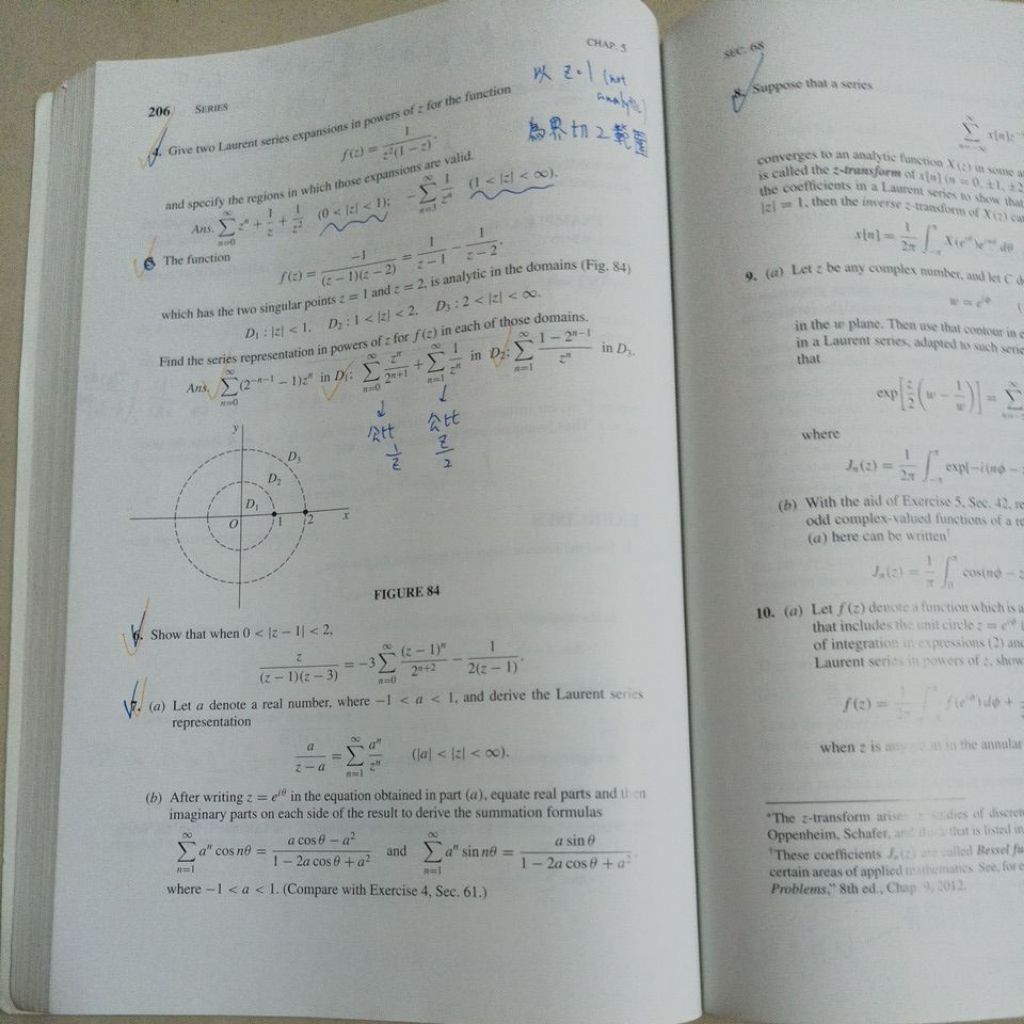 CHAP. 5
206 SERIES
以 z=1 (not
analytic)
為界切 2 範圍
4. Give two Laurent series expansions in powers of z for the function
f(z) = 1/(z²(1 − z)),
and specify the regions in which those expansions are valid.
Ans. ∑_{n=0}^{∞} zⁿ + 1/z + 1/z² (0 < |z| < 1); −∑_{n=3}^{∞} 1/zⁿ (1 < |z| < ∞).
The function
f(z) = −1/((z − 1)(z − 2)) = 1/(z − 1) − 1/(z − 2),
which has the two singular points z = 1 and z = 2, is analytic in the domains (Fig. 84)
D₁ : |z| < 1, D₂ : 1 < |z| < 2, D₃ : 2 < |z| < ∞.
Find the series representation in powers of z for f(z) in each of those domains.
Ans. ∑_{n=0}^{∞} (2^{−n−1} − 1)zⁿ in D₁; ∑_{n=0}^{∞} zⁿ/2^{n+1} + ∑_{n=1}^{∞} 1/zⁿ in D₂; ∑_{n=1}^{∞} (1 − 2^{n−1})/zⁿ in D₃.
↓ ↓
公比 公比
1/z z/2
y
D₃
D₂
D₁
O 1 2 x
FIGURE 84
6. Show that when 0 < |z − 1| < 2,
z/((z − 1)(z − 3)) = −3 ∑_{n=0}^{∞} (z − 1)ⁿ/2^{n+2} − 1/(2(z − 1)).
7. (a) Let a denote a real number, where −1 < a < 1, and derive the Laurent series
representation
a/(z − a) = ∑_{n=1}^{∞} aⁿ/zⁿ (|a| < |z| < ∞).
(b) After writing z = e^{iθ} in the equation obtained in part (a), equate real parts and then
imaginary parts on each side of the result to derive the summation formulas
∑_{n=1}^{∞} aⁿ cos nθ = (a cos θ − a²)/(1 − 2a cos θ + a²) and ∑_{n=1}^{∞} aⁿ sin nθ = a sin θ/(1 − 2a cos θ + a²)
where −1 < a < 1. (Compare with Exercise 4, Sec. 61.)
SEC. 68
8. Suppose that a series
converges to an analytic function X(z) in some
is called the z-transform of x[n] (n = 0, ±1, ±2
the coefficients in a Laurent series to show that
|z| = 1, then the inverse z-transform of X(z)
x[n] = 1/2π ∫_{−π}^{π} X(e^{iθ})e^{inθ} dθ
9. (a) Let z be any complex number, and let C
w = e^{iφ}
in the w plane. Then use that contour in
in a Laurent series, adapted to such
that
exp[z/2 (w − 1/w)] = ∑
where
Jₙ(z) = 1/2π ∫_{−π}^{π} exp[−i(nφ −
(b) With the aid of Exercise 5, Sec. 42,
odd complex-valued functions of a
(a) here can be written†
Jₙ(z) = 1/π ∫_{0}^{π} cos(nφ −
10. (a) Let f(z) denote a function which is
that includes the unit circle z = e^{iφ}
of integration in expressions (2) and
Laurent series in powers of z, show
f(z) = 1/2π ∫_{−π}^{π} f(e^{iφ}) dφ +
when z is any in the annular
*The z-transform arises in studies of
Oppenheim, Schafer, and that is listed in
†These coefficients Jₙ(z) are called Bessel
certain areas of applied mathematics. See,
Problems," 8th ed., Chap. 9, 2012.